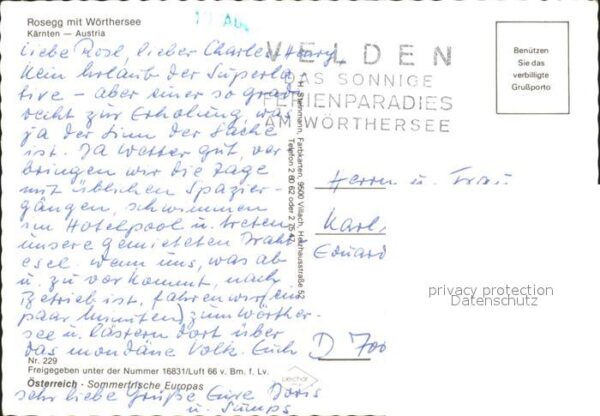 Rosegg mit Wörthersee
Kärnten — Austria
Liebe Rosl, lieber Charles Henry,
Kein Urlaub der Superla-
tive - aber einer so grad
recht zur Erholung, was
ja der Sinn der Sache
ist. Ja Wetter gut, ver-
bringen wir die Tage
mit üblichen Spazier-
gängen, schwimmen
im Hotelpool u. treten
unsere gemieteten Draht
esel. Wenn uns, was ab
u. zu vor kommt, nach
Betrieb ist, fahren wir (ein
paar Minuten) zum Wörther-
see u. lästern dort über
das mondäne Volk. Euch
sehr liebe Grüße Eure Doris
u. Sumps
Nr. 229
Freigegeben unter der Nummer 16831/Luft 66 v. Bm. f. Lv.
Österreich - Sommerfrische Europas
VELDEN
DAS SONNIGE
FERIENPARADIES
AM WÖRTHERSEE
Benützen
Sie das
verbilligte
Grußporto
Farbkarten, 9500 Villach,
Herrn u. Frau
Karl,
Eduard
D 700
privacy protection
Datenschutz